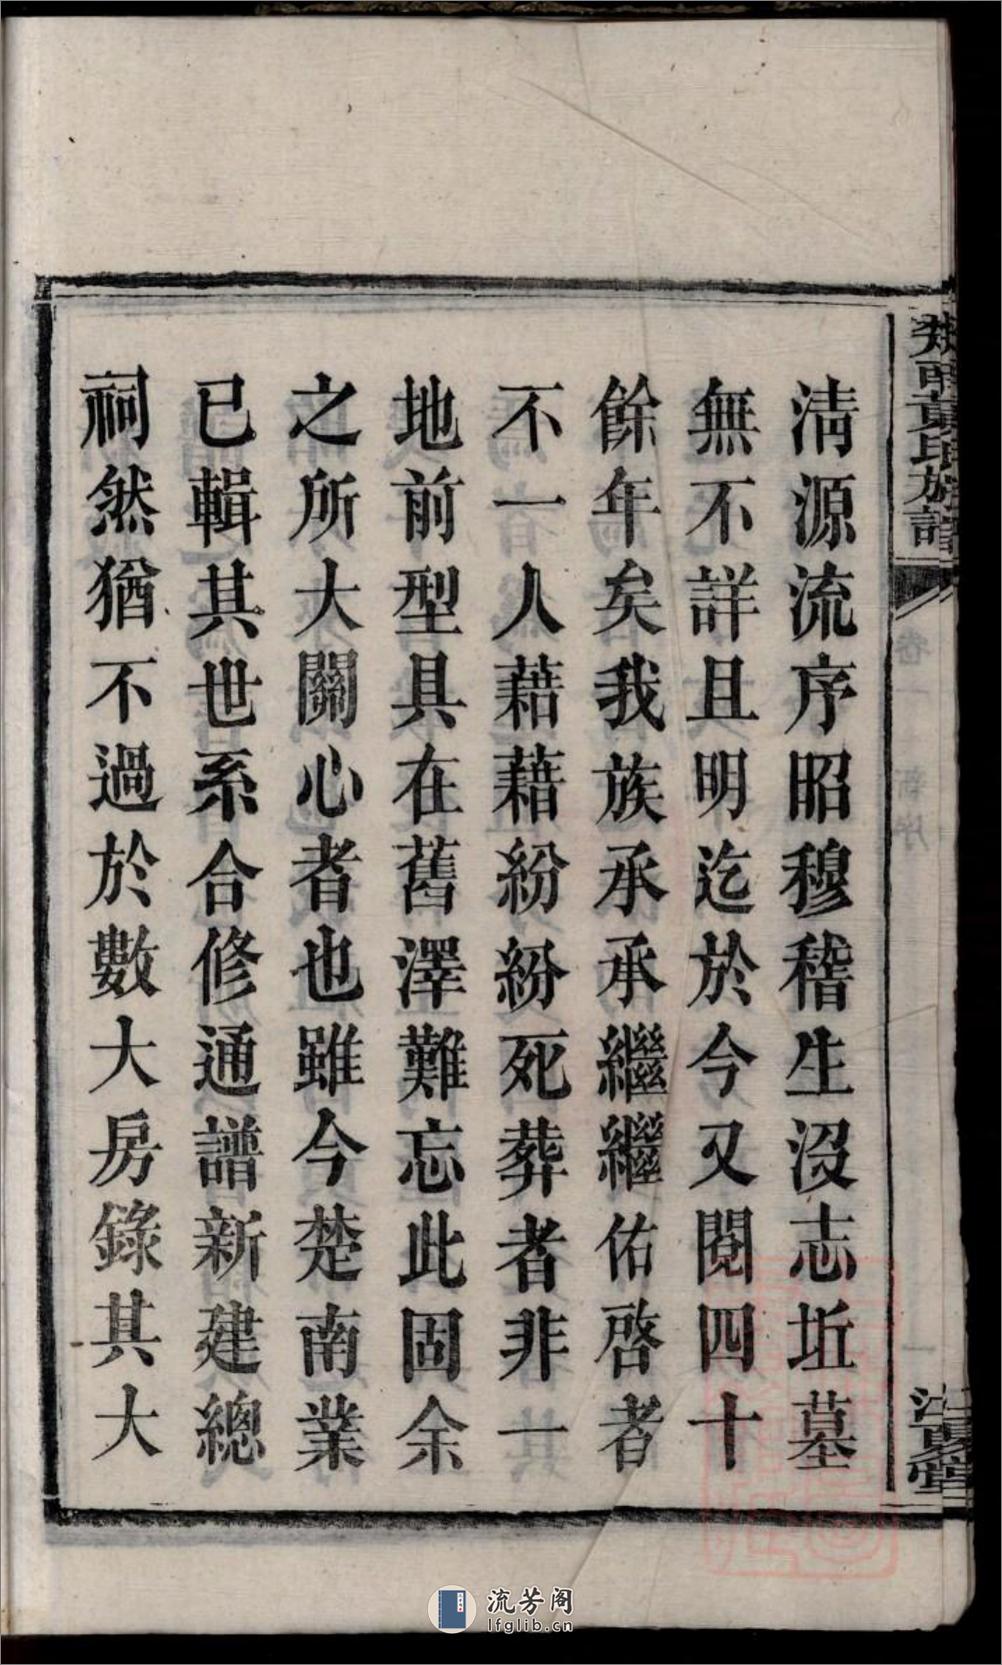 清源流序昭穆稽生沒志坵墓
無不詳且明迄於今又閱四十
餘年矣我族承承繼繼佑啓者
不一人藉藉紛紛死葬者非一
地前型具在舊澤難忘此固余
之所大關心者也雖今楚南業
已輯其世系合修通譜新建總
祠然猶不過於數大房錄其大
黃氏族譜
卷一
新序
江夏堂
流芳阁
lfglib.cn